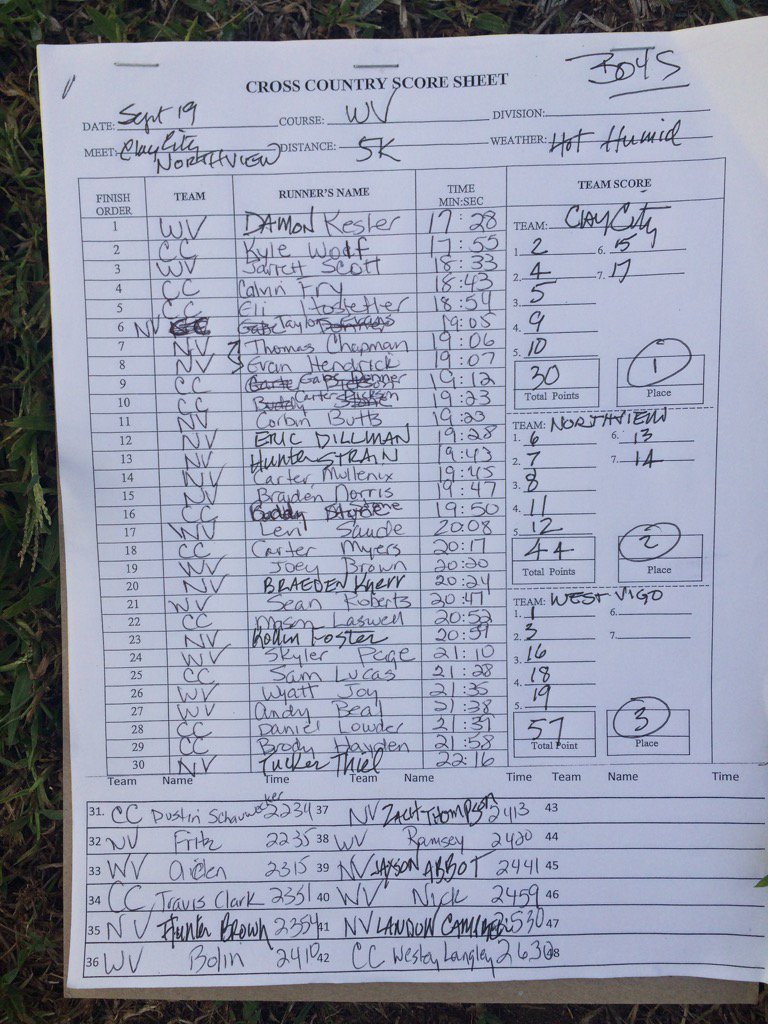 BOYS
CROSS COUNTRY SCORE SHEET
DATE: Sept 19 COURSE: WV DIVISION:
MEET: Clay City NORTHVIEW DISTANCE: 5K WEATHER: Hot Humid
FINISH ORDER TEAM RUNNER'S NAME TIME MIN:SEC TEAM SCORE
1 WV DAMON Kesler 17:28
2 CC Kyle Wolf 17:55
3 WV Jarrett Scott 18:33
4 CC Calvin Fry 18:43
5 CC Eli Hostetler 18:54
6 NV Taylor Evans 19:05
7 NV Thomas Chapman 19:06
8 NV Evan Hendrick 19:07
9 CC Gabe Donner 19:12
10 CC Carter Dickson 19:23
11 NV Corbin Butts 19:23
12 NV ERIC DILLMAN 19:28
13 NV Hunter STRAIN 19:43
14 NV Carter Mullenix 19:45
15 NV Brayden Norris 19:47
16 CC Buddy Stone 19:50
17 WV Levi Saude 20:08
18 CC Carter Myers 20:17
19 WV Joey Brown 20:20
20 NV BRAEDEN Knerr 20:24
21 WV Sean Roberts 20:47
22 CC Mason Laswell 20:52
23 NV Robin Foster 20:59
24 WV Skyler Page 21:10
25 CC Sam Lucas 21:28
26 WV Wyatt Joy 21:35
27 WV Andy Beal 21:38
28 CC Daniel Lowder 21:39
29 CC Brody Hayden 21:58
30 NV Tucker Thiel 22:16
TEAM: Clay City
1. 2 6. 15
2. 4 7. 17
3. 5
4. 9
5. 10
30 1
Total Points Place
TEAM: NORTHVIEW
1. 6 6. 13
2. 7 7. 14
3. 8
4. 11
5. 12
44 2
Total Points Place
TEAM: WEST VIGO
1. 1 6.
2. 3 7.
3. 16
4. 18
5. 19
57 3
Total Point Place
Team Name Time Team Name Time Team Name Time
31. CC Dustin Schauwecker 2234 37 NV ZACH THOMPSON 2413 43
32 NV Fritz 2235 38 WV Ramsey 2420 44
33 WV Aiden 2315 39 NV JAXSON ABBOT 2441 45
34 CC Travis Clark 2351 40 WV Nick 2459 46
35 NV Hunter BROWN 2354 41 NV LANDON 2530 47
36 WV Bolin 2410 42 CC Wesley Langley 2630 48